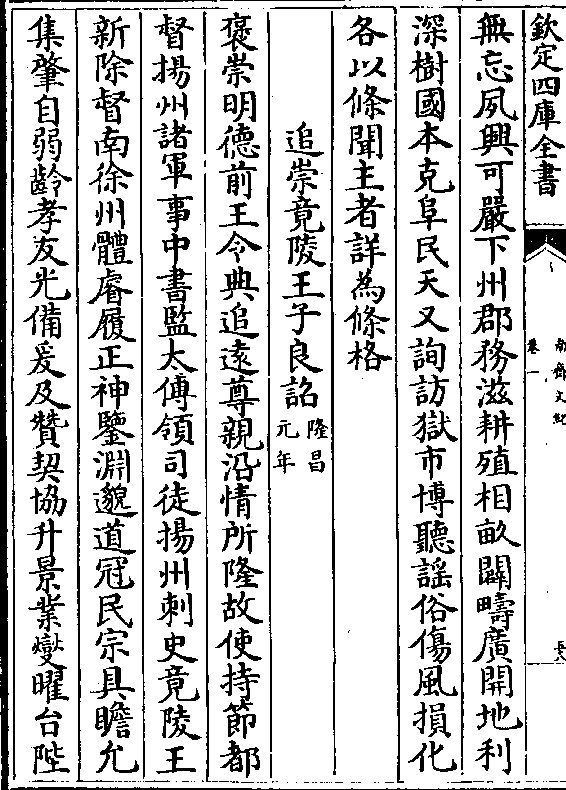 欽定四庫全書
南齊文紀
卷一
無忘夙興可嚴下州郡務滋耕殖相畝闢疇廣開地利
深樹國本克阜民天又詢訪獄市博聽謡俗傷風損化
各以條聞主者詳為條格
追崇竟陵王子良詔隆昌元年
褒崇明德前王令典追遠尊親沿情所隆故使持節都
督揚州諸軍事中書監太傅領司徒揚州刺史竟陵王
新除督南徐州體睿履正神鑒淵邈道冠民宗具瞻允
集肇自弱齡孝友光備爰及贊契協升景業燮曜台陛